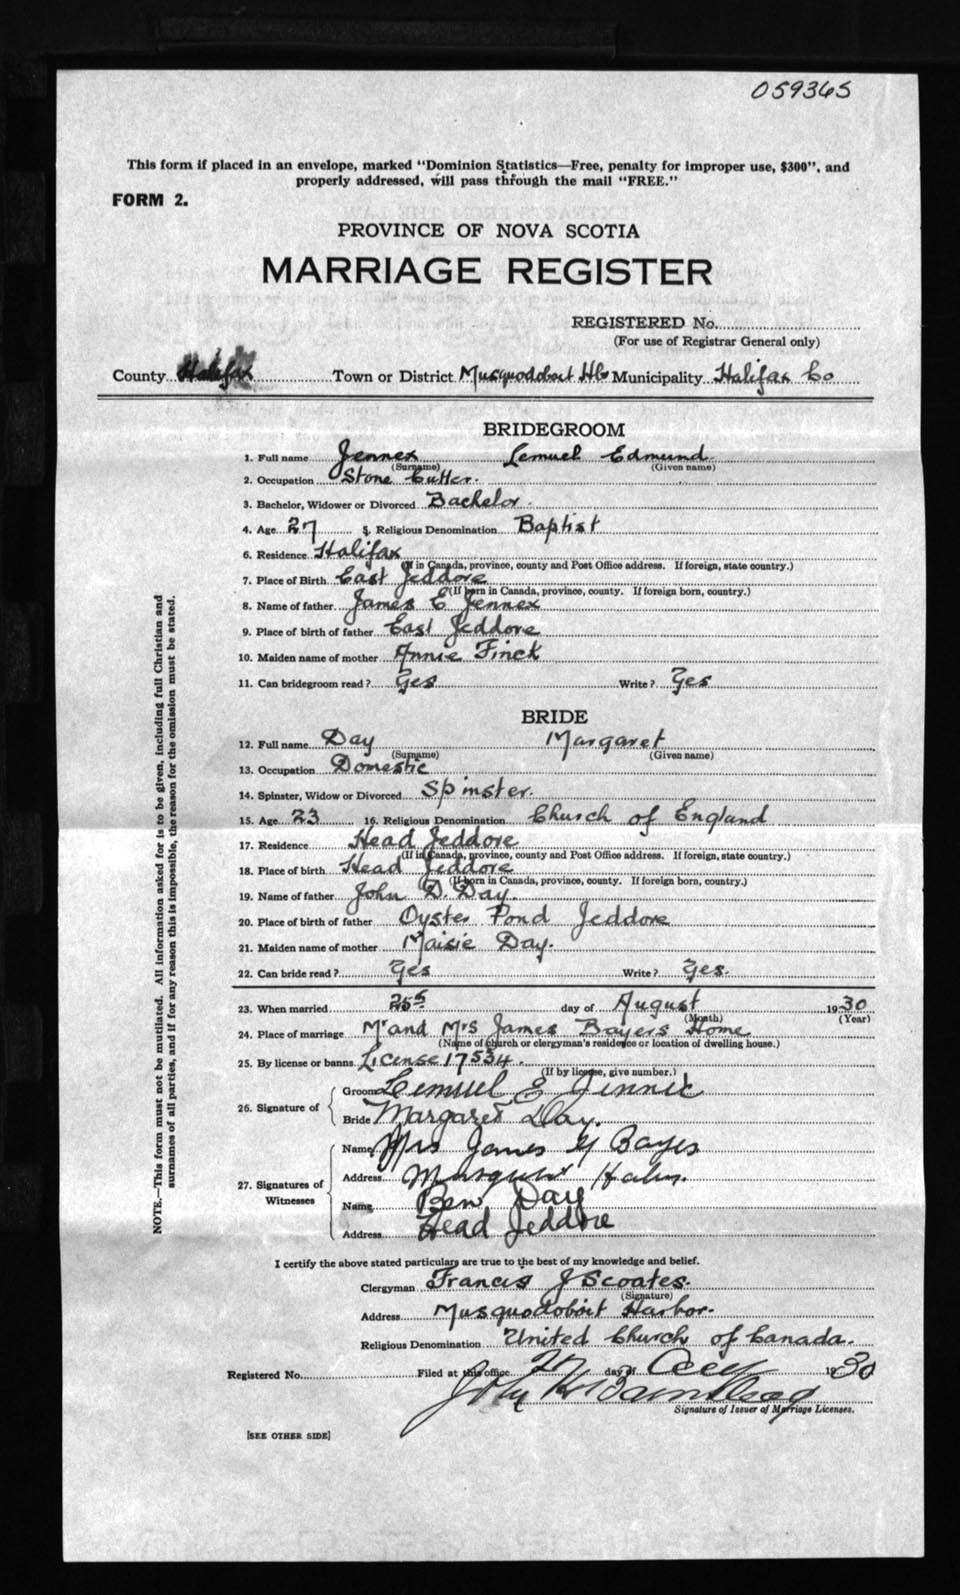 059365
This form if placed in an envelope, marked "Dominion Statistics—Free, penalty for improper use, $300", and
properly addressed, will pass through the mail "FREE."
FORM 2.
PROVINCE OF NOVA SCOTIA
MARRIAGE REGISTER
REGISTERED No.
(For use of Registrar General only)
County Halifax Town or District Musquodoboit Hb Municipality Halifax Co
BRIDEGROOM
1. Full name Jennex Lemuel Edmund
(Surname) (Given name)
2. Occupation Stone Cutter.
3. Bachelor, Widower or Divorced Bachelor.
4. Age 27 5. Religious Denomination Baptist
6. Residence Halifax
(If in Canada, province, county and Post Office address. If foreign, state country.)
7. Place of Birth East Jeddore
(If born in Canada, province, county. If foreign born, country.)
8. Name of father James E Jennex
9. Place of birth of father East Jeddore
10. Maiden name of mother Annie Finck
11. Can bridegroom read? Yes Write? Yes
BRIDE
12. Full name Day Margaret
(Surname) (Given name)
13. Occupation Domestic
14. Spinster, Widow or Divorced Spinster.
15. Age 23 16. Religious Denomination Church of England
17. Residence Head Jeddore
(If in Canada, province, county and Post Office address. If foreign, state country.)
18. Place of birth Head Jeddore
(If born in Canada, province, county. If foreign born, country.)
19. Name of father John D. Day.
20. Place of birth of father Oyster Pond Jeddore
21. Maiden name of mother Maisie Day.
22. Can bride read? Yes Write? Yes.
23. When married 25th day of August 1930
(Month) (Year)
24. Place of marriage Mr and Mrs James Bayers Home
(Name of church or clergyman's residence or location of dwelling house.)
25. By license or banns License 17534.
(If by license, give number.)
26. Signature of
Groom Lemuel E Jennic
Bride Margaret Day.
27. Signatures of Witnesses
Name Mrs James Y Bayes
Address
Name Ben Day
Address Head Jeddore
I certify the above stated particulars are true to the best of my knowledge and belief.
Clergyman Francis J Scoates.
(Signature)
Address Musquodoboit Harbor.
Religious Denomination United Church of Canada.
Registered No. Filed at this office 27 day of 1930
John
Signature of Issuer of Marriage Licenses.
[SEE OTHER SIDE]
NOTE.—This form must not be mutilated. All information asked for is to be given, including full Christian and
surnames of all parties, and if for any reason this is impossible, the reason for the omission must be stated.